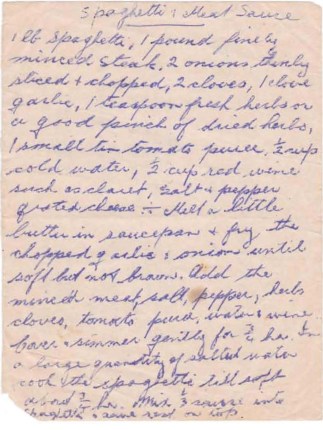 Spaghetti & Meat Sauce
1 lb Spaghetti, 1 pound finely
minced steak. 2 onions thinly
sliced & chopped, 2 cloves, 1 clove
garlic, 1 teaspoon fresh herbs or
a good pinch of dried herbs,
1 small tin tomato puree. ½ cup
cold water, ½ cup red wine
such as claret, salt & pepper
grated cheese ÷ Melt a little
butter in saucepan & fry the
chopped garlic & onion until
soft but not brown. Add the
minced meat, salt, pepper, herbs
cloves, tomato puree, water & wine
Cover & simmer gently for ¾ hr. In
a large quantity of salted water
cook the spaghetti till soft
about ½ hr. Mix ⅓ sauce into
spaghetti & serve rest on top.